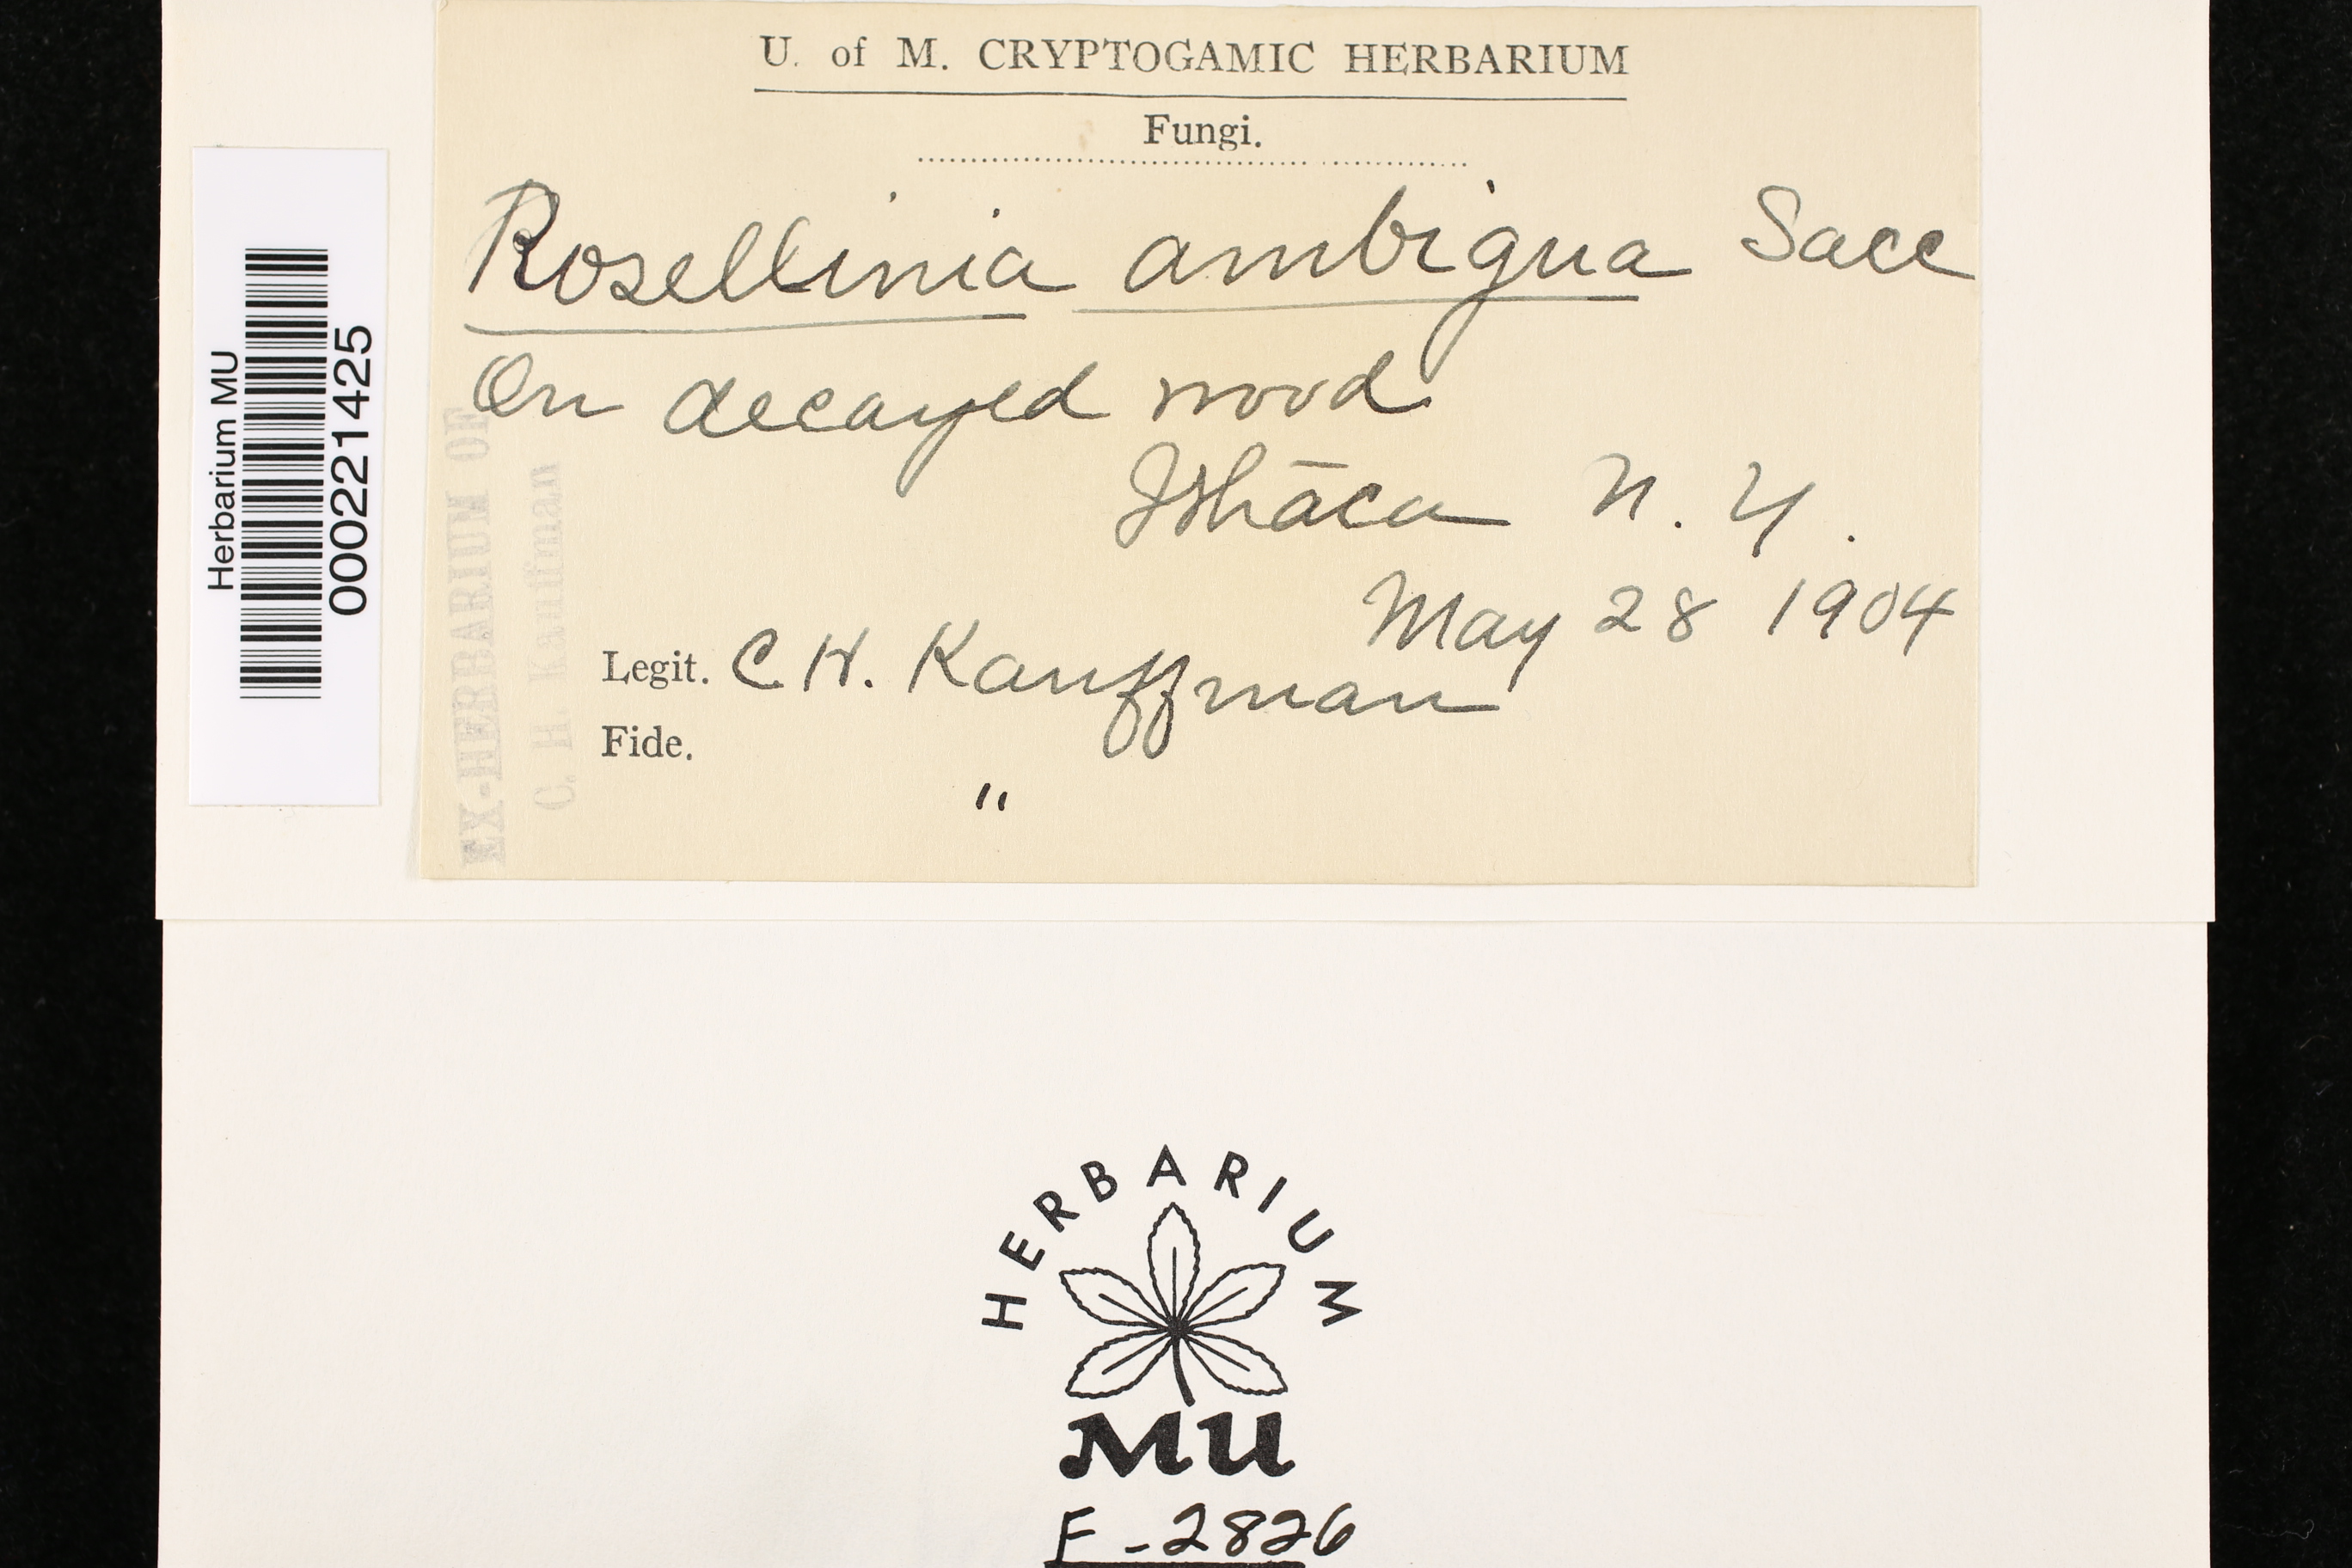 U. of M. CRYPTOGAMIC HERBARIUM
Fungi.
Rosellinia ambigua Sacc
On decayed wood
Ithaca N. Y.
May 28 1904
Legit. C. H. Kauffman
Fide.
"
EX-HERBARIUM OF
C. H. Kauffman
Herbarium MU
000221425
HERBARIUM
MU
F-2826